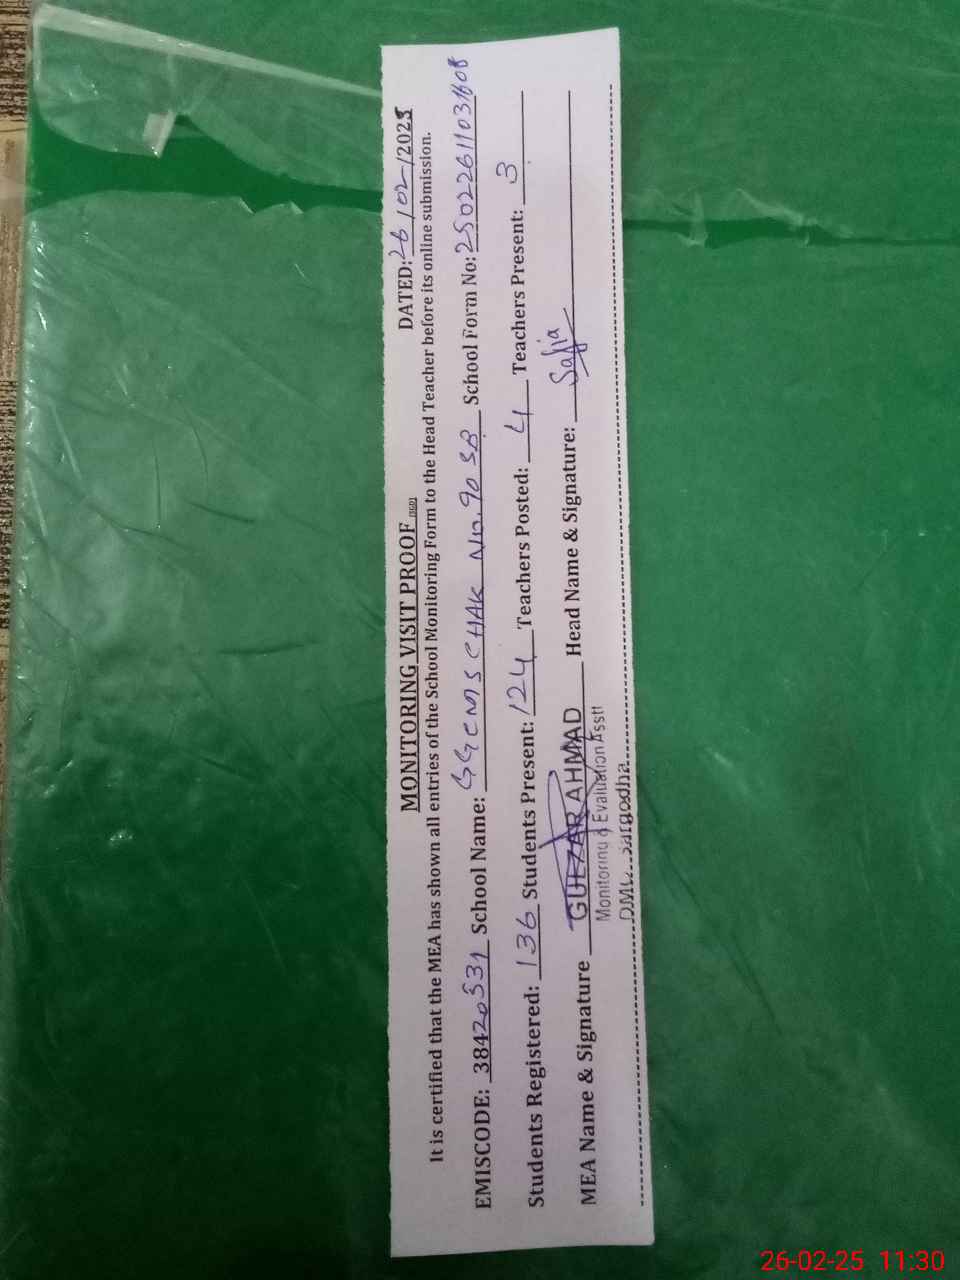 MONITORING VISIT PROOF (SGD) DATED: 26/02/2025
It is certified that the MEA has shown all entries of the School Monitoring Form to the Head Teacher before its online submission.
EMISCODE: 38420531 School Name: GGCMS CHAK No. 90 SB School Form No: 250226110311608
Students Registered: 136 Students Present: 124 Teachers Posted: 4 Teachers Present: 3
MEA Name & Signature GULZAR AHMAD Head Name & Signature: Safia
Monitoring & Evaluation Asstt
Sargodha
26-02-25 11:30